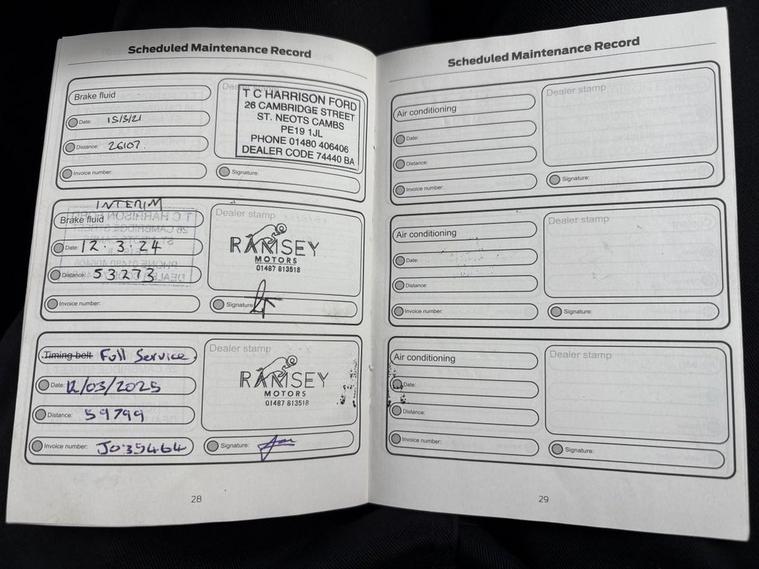 Scheduled Maintenance Record
Brake fluid
Date: 15/3/21
Distance: 26107.
Invoice number:
Dealer stamp
T C HARRISON FORD
26 CAMBRIDGE STREET
ST. NEOTS CAMBS
PE19 1JL
PHONE 01480 406406
DEALER CODE 74440 BA
Signature:
INTERIM
Brake fluid
Date: 12.3.24
Distance: 53273
Invoice number:
Dealer stamp
RAMSEY
MOTORS
01487 813518
Signature:
Timing belt Full Service.
Date: 12/03/2025
Distance: 59799
Invoice number: JO35464
Dealer stamp
RAMSEY
MOTORS
01487 813518
Signature:
28
Scheduled Maintenance Record
Air conditioning
Date:
Distance:
Invoice number:
Dealer stamp
Signature:
Air conditioning
Date:
Distance:
Invoice number:
Dealer stamp
Signature:
Air conditioning
Date:
Distance:
Invoice number:
Dealer stamp
Signature:
29